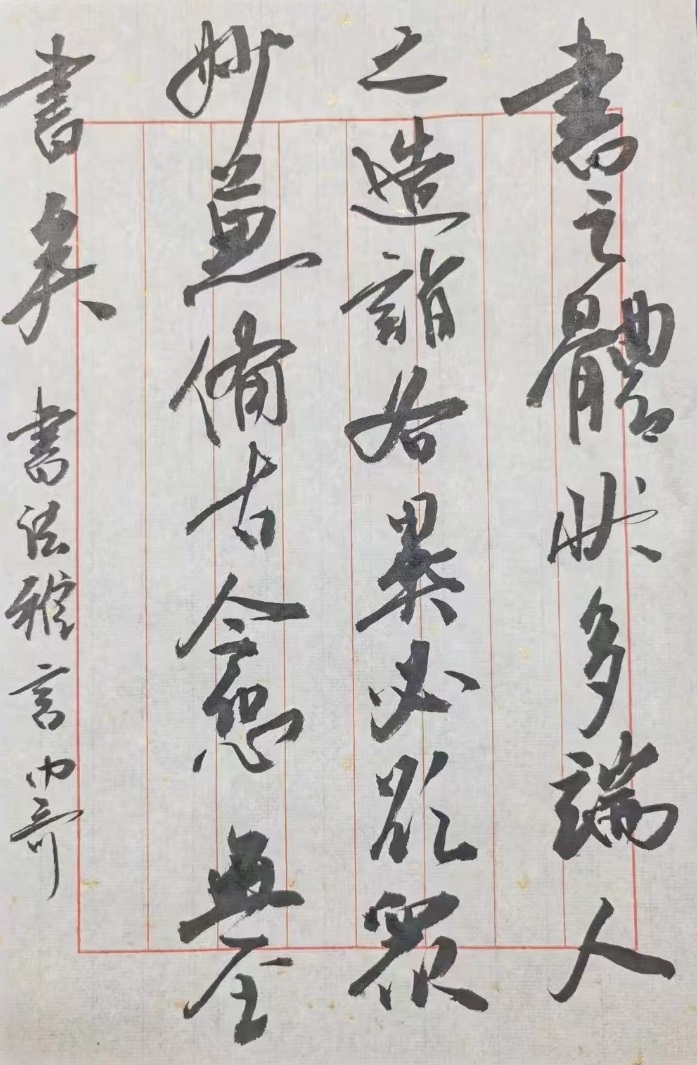 書之體狀多端人
之造詣各異必欲眾
妙兼備古今恐無全
書矣 書法雅言